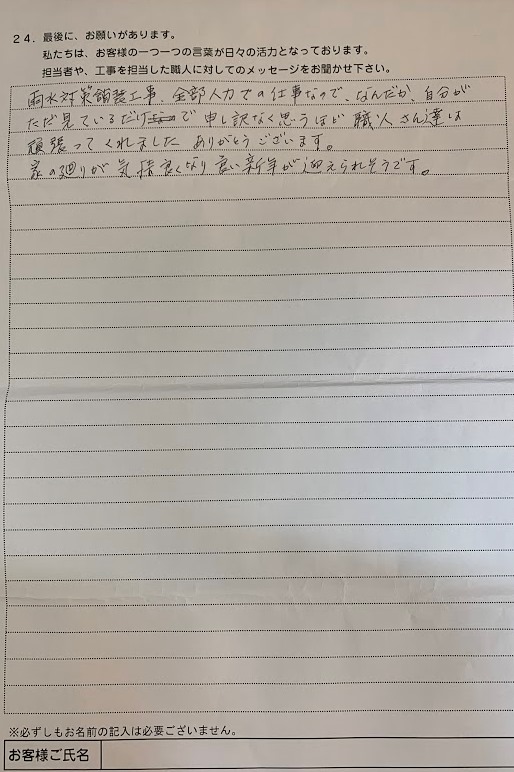 24．最後に、お願いがあります。
私たちは、お客様の一つ一つの言葉が日々の活力となっております。
担当者や、工事を担当した職人に対してのメッセージをお聞かせ下さい。
雨水対策舗装工事、全部人力での仕事なので、なんだか、自分が
ただ見ているだけで申し訳なく思うほど職人さん達は
頑張ってくれました ありがとうございます。
家の廻りが気持良くなり良い新年が迎えられそうです。
※必ずしもお名前の記入は必要ございません。
お客様ご氏名